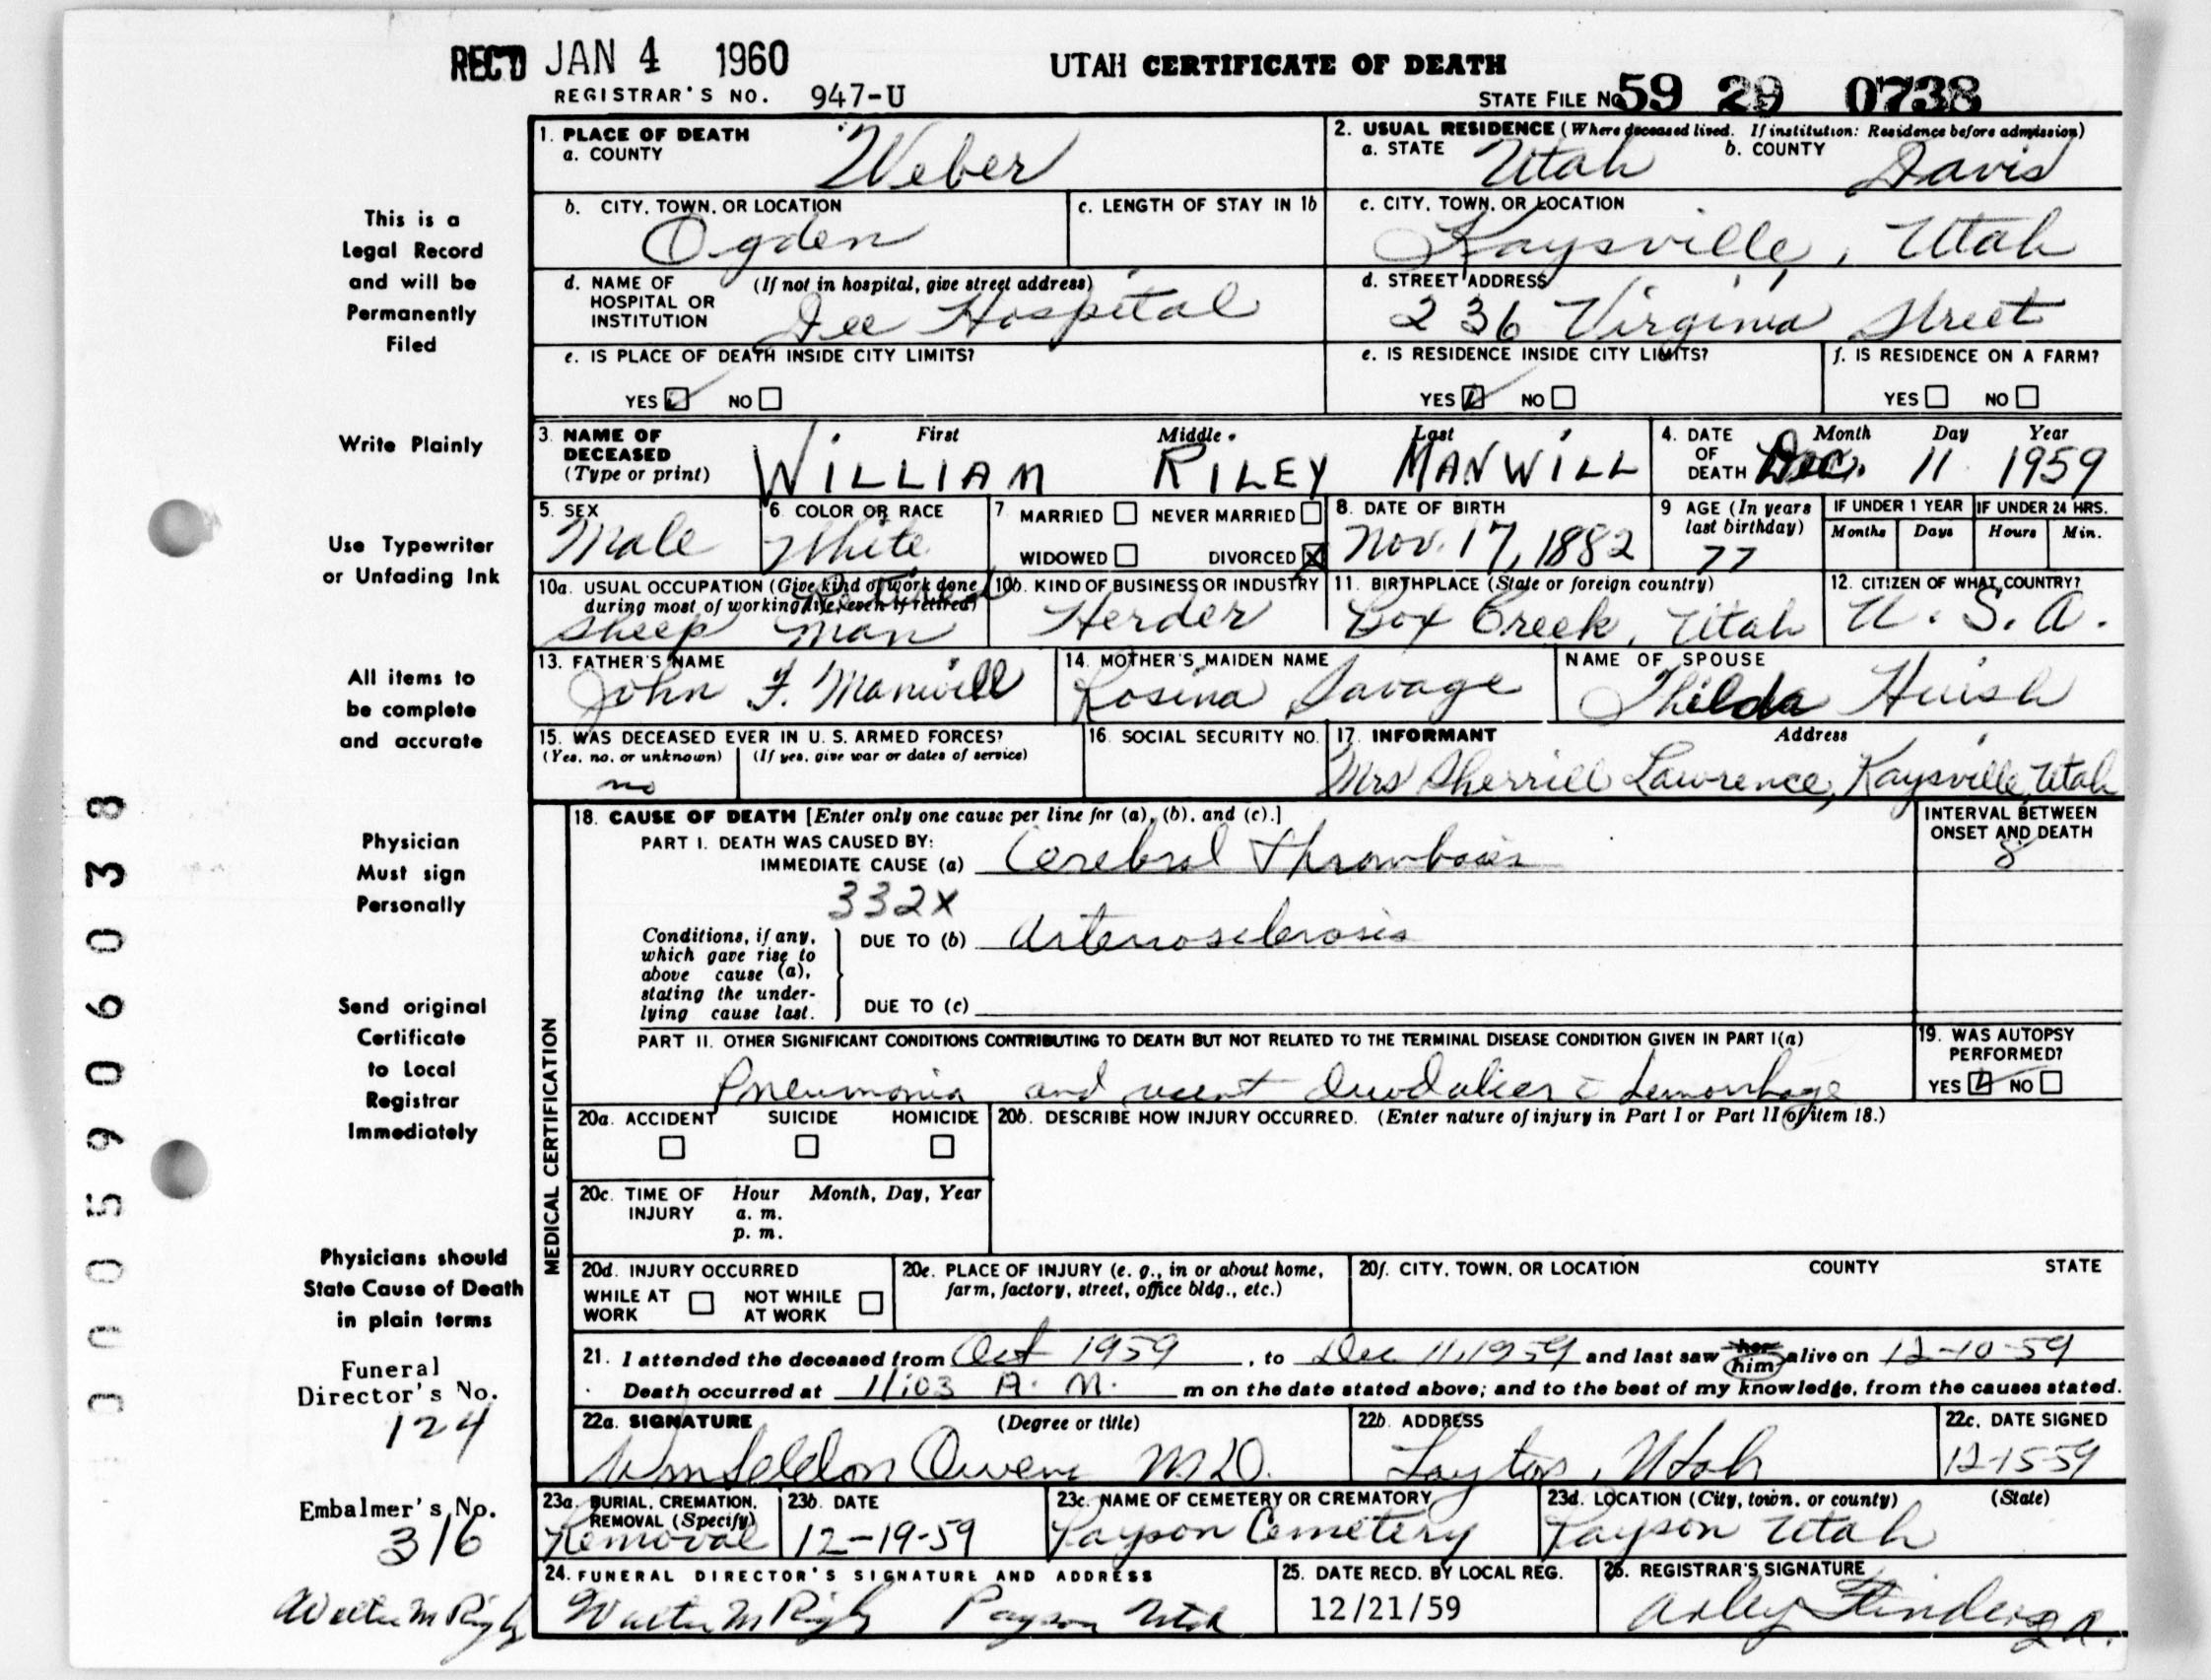 REC'D JAN 4 1960
UTAH CERTIFICATE OF DEATH
REGISTRAR'S NO. 947-U
STATE FILE NO. 59 29 0738
This is a
Legal Record
and will be
Permanently
Filed
Write Plainly
Use Typewriter
or Unfading Ink
All items to
be complete
and accurate
Physician
Must sign
Personally
Send original
Certificate
to Local
Registrar
Immediately
Physicians should
State Cause of Death
in plain terms
Funeral
Director's No.
124
Embalmer's No.
316
Walter M Rigby
0005906038
1. PLACE OF DEATH
a. COUNTY Weber
2. USUAL RESIDENCE (Where deceased lived. If institution: Residence before admission)
a. STATE Utah b. COUNTY Davis
b. CITY, TOWN, OR LOCATION
Ogden
c. LENGTH OF STAY IN 1b
c. CITY, TOWN, OR LOCATION
Kaysville, Utah
d. NAME OF HOSPITAL OR INSTITUTION (If not in hospital, give street address)
Dee Hospital
d. STREET ADDRESS
236 Virginia Street
e. IS PLACE OF DEATH INSIDE CITY LIMITS?
YES NO
e. IS RESIDENCE INSIDE CITY LIMITS?
YES NO
f. IS RESIDENCE ON A FARM?
YES NO
3. NAME OF DECEASED (Type or print)
First Middle Last
WILLIAM RILEY MANWILL
4. DATE OF DEATH
Month Day Year
Dec. 11 1959
5. SEX
Male
6. COLOR OR RACE
White
7. MARRIED NEVER MARRIED
WIDOWED DIVORCED X
8. DATE OF BIRTH
Nov. 17, 1882
9 AGE (In years last birthday)
77
IF UNDER 1 YEAR
Months Days
IF UNDER 24 HRS.
Hours Min.
10a. USUAL OCCUPATION (Give kind of work done during most of working life, even if retired)
Retired
Sheep Man
10b. KIND OF BUSINESS OR INDUSTRY
Herder
11. BIRTHPLACE (State or foreign country)
Box Creek, Utah
12. CITIZEN OF WHAT COUNTRY?
U. S. A.
13. FATHER'S NAME
John F. Manwill
14. MOTHER'S MAIDEN NAME
Rosina Savage
NAME OF SPOUSE
Thilda Huish
15. WAS DECEASED EVER IN U. S. ARMED FORCES?
(Yes, no, or unknown) (If yes, give war or dates of service)
no
16. SOCIAL SECURITY NO.
17. INFORMANT Address
Mrs Sherrill Lawrence, Kaysville, Utah
MEDICAL CERTIFICATION
18. CAUSE OF DEATH [Enter only one cause per line for (a), (b), and (c).]
INTERVAL BETWEEN ONSET AND DEATH
PART I. DEATH WAS CAUSED BY:
IMMEDIATE CAUSE (a) Cerebral Thrombosis
332X
Conditions, if any, which gave rise to above cause (a), stating the underlying cause last.
DUE TO (b) Arteriosclerosis
DUE TO (c)
PART II. OTHER SIGNIFICANT CONDITIONS CONTRIBUTING TO DEATH BUT NOT RELATED TO THE TERMINAL DISEASE CONDITION GIVEN IN PART I(a)
Pneumonia and recent hemorrhage
19. WAS AUTOPSY PERFORMED?
YES NO
20a. ACCIDENT SUICIDE HOMICIDE
20b. DESCRIBE HOW INJURY OCCURRED. (Enter nature of injury in Part I or Part II of item 18.)
20c. TIME OF INJURY
Hour Month, Day, Year
a. m.
p. m.
20d. INJURY OCCURRED
WHILE AT WORK NOT WHILE AT WORK
20e. PLACE OF INJURY (e. g., in or about home, farm, factory, street, office bldg., etc.)
20f. CITY, TOWN, OR LOCATION COUNTY STATE
21. I attended the deceased from Oct 1959, to Dec 11, 1959 and last saw her him alive on 12-10-59
Death occurred at 11:03 A. M. m on the date stated above; and to the best of my knowledge, from the causes stated.
22a. SIGNATURE (Degree or title)
Wm Seldon Owens M.D.
22b. ADDRESS
Layton, Utah
22c. DATE SIGNED
12-15-59
23a. BURIAL, CREMATION, REMOVAL (Specify)
Removal
23b. DATE
12-19-59
23c. NAME OF CEMETERY OR CREMATORY
Payson Cemetery
23d. LOCATION (City, town, or county) (State)
Payson Utah
24. FUNERAL DIRECTOR'S SIGNATURE AND ADDRESS
Walter M Rigby Payson Utah
25. DATE RECD. BY LOCAL REG.
12/21/59
26. REGISTRAR'S SIGNATURE
Arley Flinders